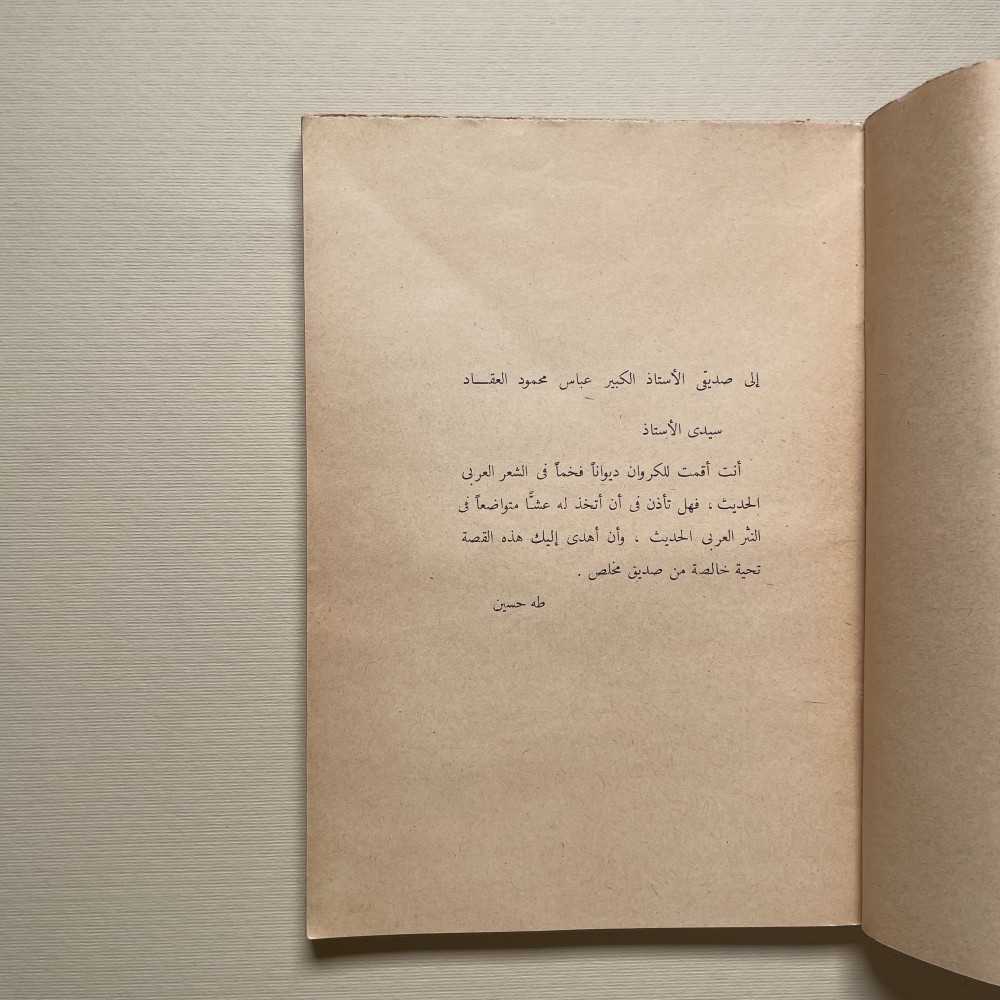 إلى صديقى الأستاذ الكبير عباس محمود العقـــاد
سيدى الأستاذ
أنت أقمت للكروان ديواناً فخماً فى الشعر العربى
الحديث ، فهل تأذن فى أن أتخذ له عشًّا متواضعاً فى
النثر العربى الحديث ، وأن أهدى إليك هذه القصة
تحية خالصة من صديق مخلص .
طه حسين